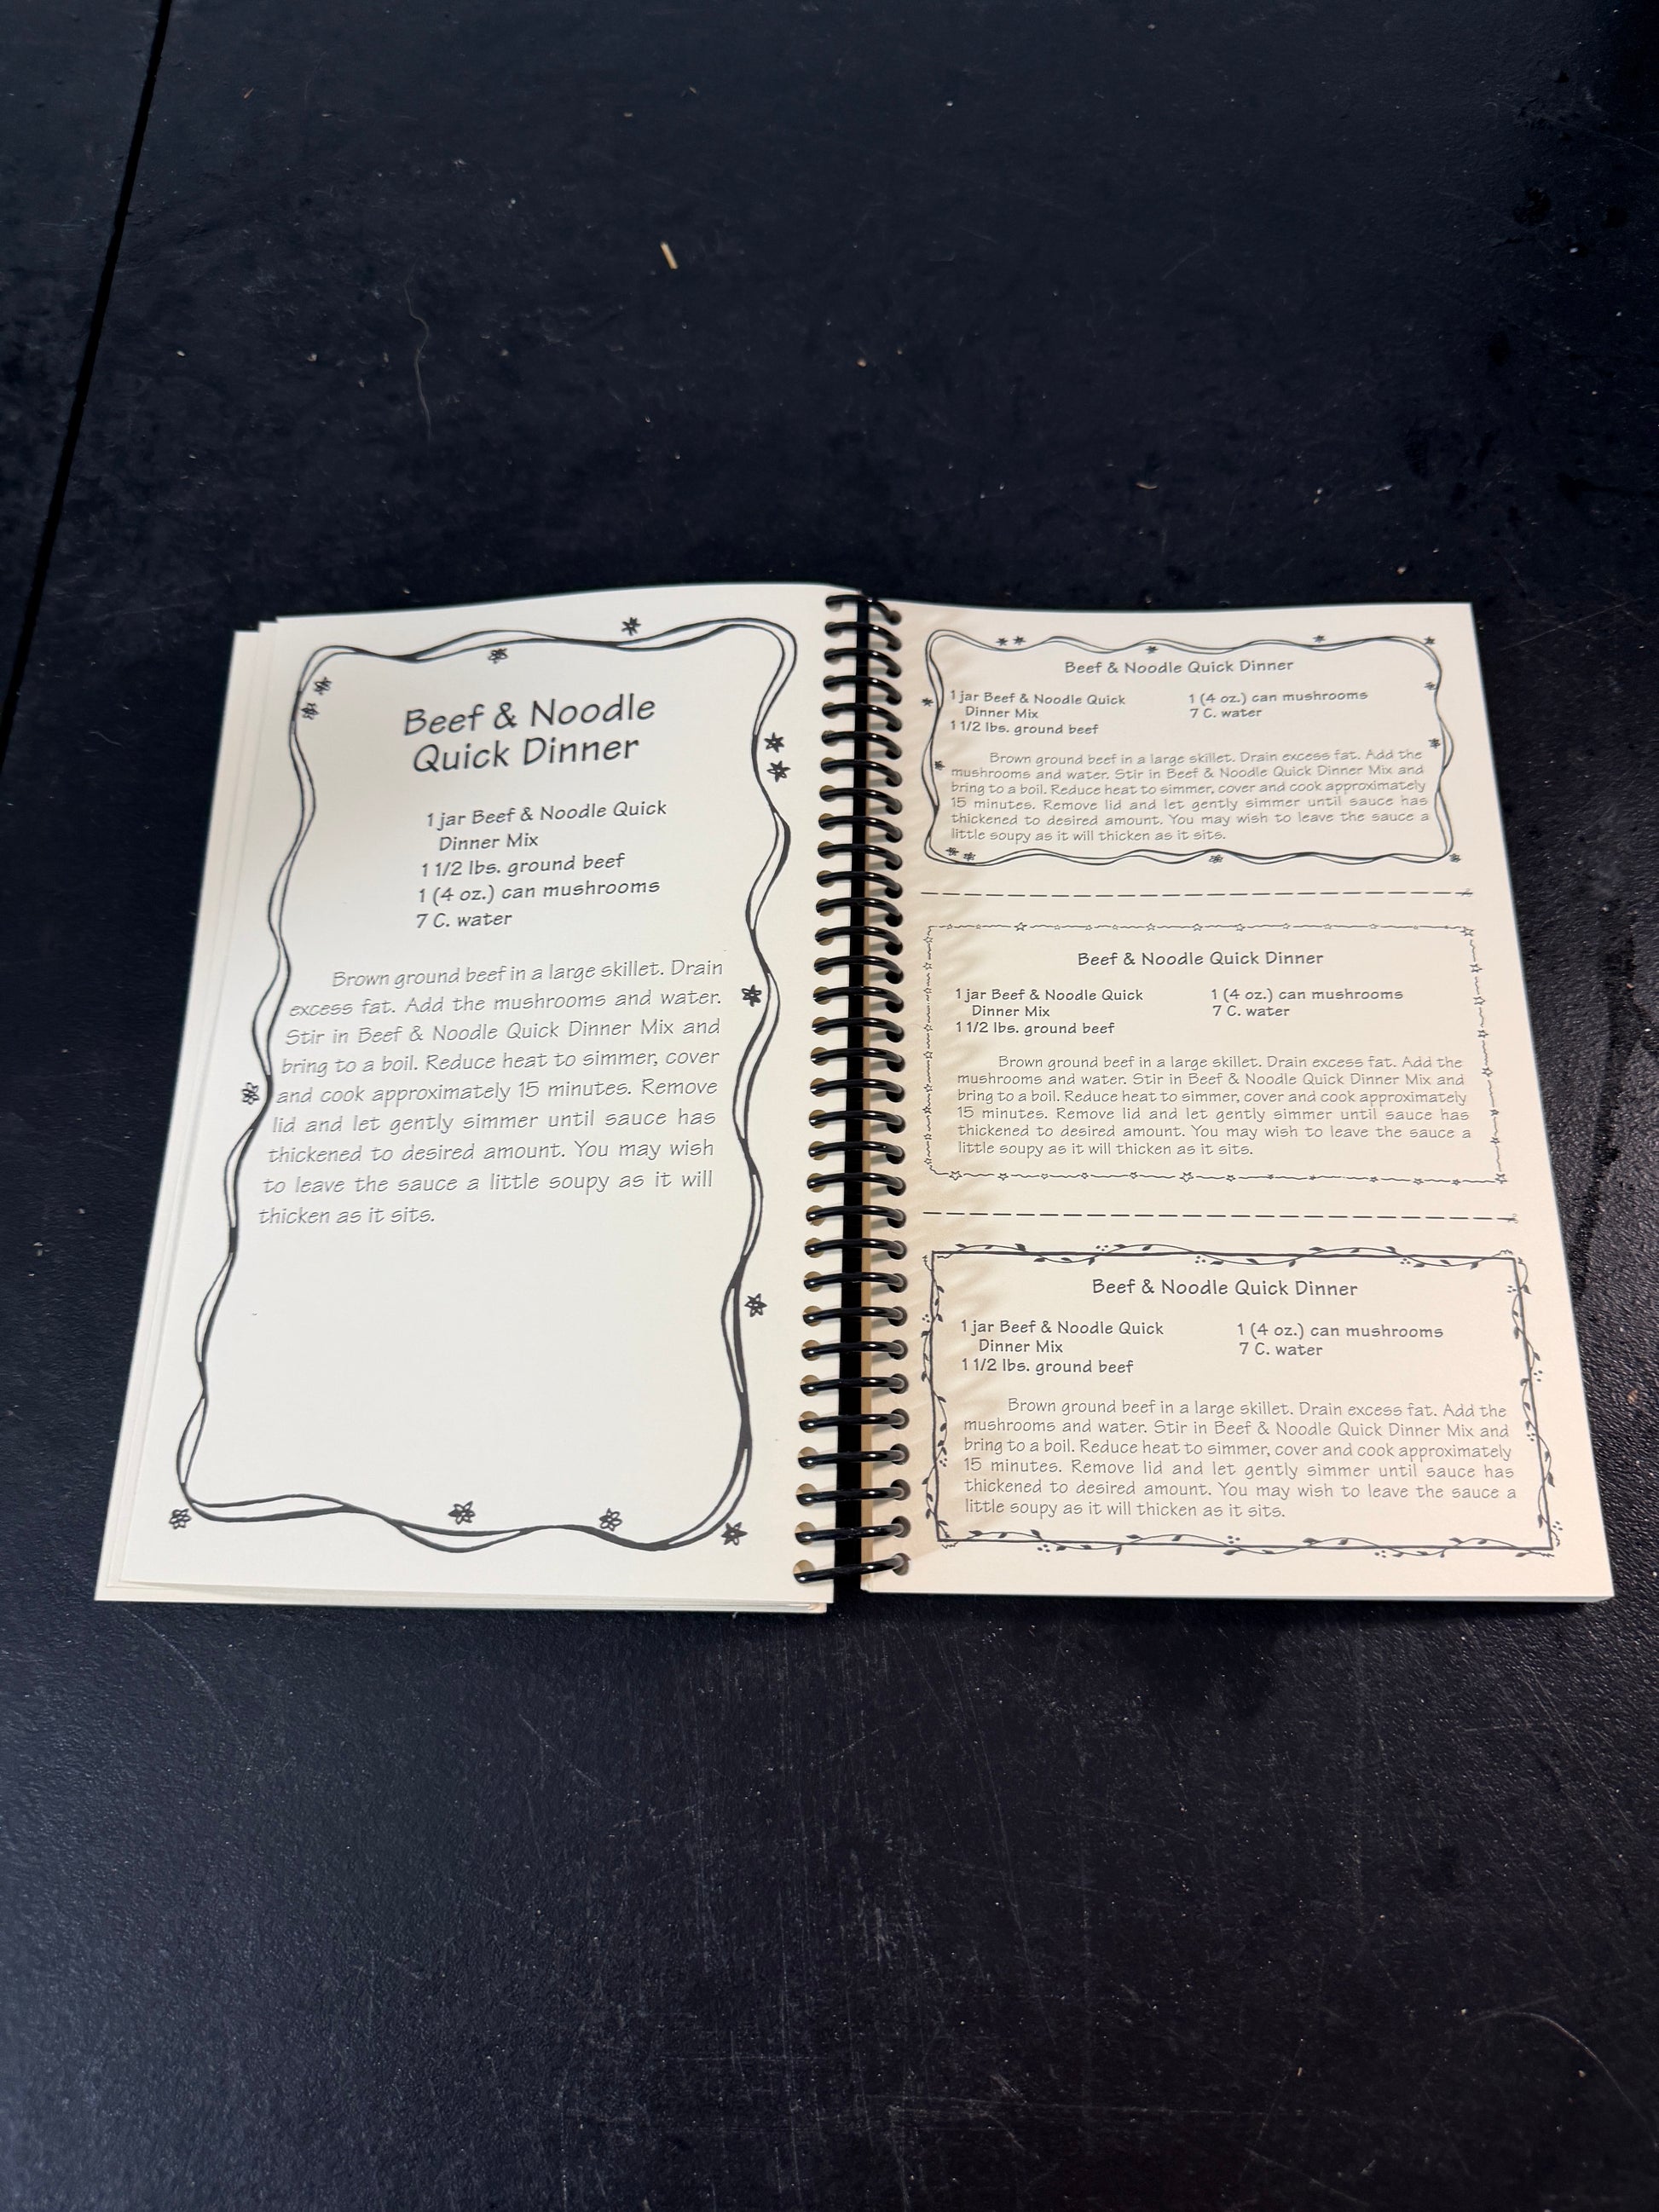 Beef & Noodle
Quick Dinner
1 jar Beef & Noodle Quick
Dinner Mix
1 1/2 lbs. ground beef
1 (4 oz.) can mushrooms
7 C. water
Brown ground beef in a large skillet. Drain
excess fat. Add the mushrooms and water.
Stir in Beef & Noodle Quick Dinner Mix and
bring to a boil. Reduce heat to simmer, cover
and cook approximately 15 minutes. Remove
lid and let gently simmer until sauce has
thickened to desired amount. You may wish
to leave the sauce a little soupy as it will
thicken as it sits.
Beef & Noodle Quick Dinner
1 jar Beef & Noodle Quick
Dinner Mix
1 1/2 lbs. ground beef
1 (4 oz.) can mushrooms
7 C. water
Brown ground beef in a large skillet. Drain excess fat. Add the
mushrooms and water. Stir in Beef & Noodle Quick Dinner Mix and
bring to a boil. Reduce heat to simmer, cover and cook approximately
15 minutes. Remove lid and let gently simmer until sauce has
thickened to desired amount. You may wish to leave the sauce a
little soupy as it will thicken as it sits.
Beef & Noodle Quick Dinner
1 jar Beef & Noodle Quick
Dinner Mix
1 1/2 lbs. ground beef
1 (4 oz.) can mushrooms
7 C. water
Brown ground beef in a large skillet. Drain excess fat. Add the
mushrooms and water. Stir in Beef & Noodle Quick Dinner Mix and
bring to a boil. Reduce heat to simmer, cover and cook approximately
15 minutes. Remove lid and let gently simmer until sauce has
thickened to desired amount. You may wish to leave the sauce a
little soupy as it will thicken as it sits.
Beef & Noodle Quick Dinner
1 jar Beef & Noodle Quick
Dinner Mix
1 1/2 lbs. ground beef
1 (4 oz.) can mushrooms
7 C. water
Brown ground beef in a large skillet. Drain excess fat. Add the
mushrooms and water. Stir in Beef & Noodle Quick Dinner Mix and
bring to a boil. Reduce heat to simmer, cover and cook approximately
15 minutes. Remove lid and let gently simmer until sauce has
thickened to desired amount. You may wish to leave the sauce a
little soupy as it will thicken as it sits.